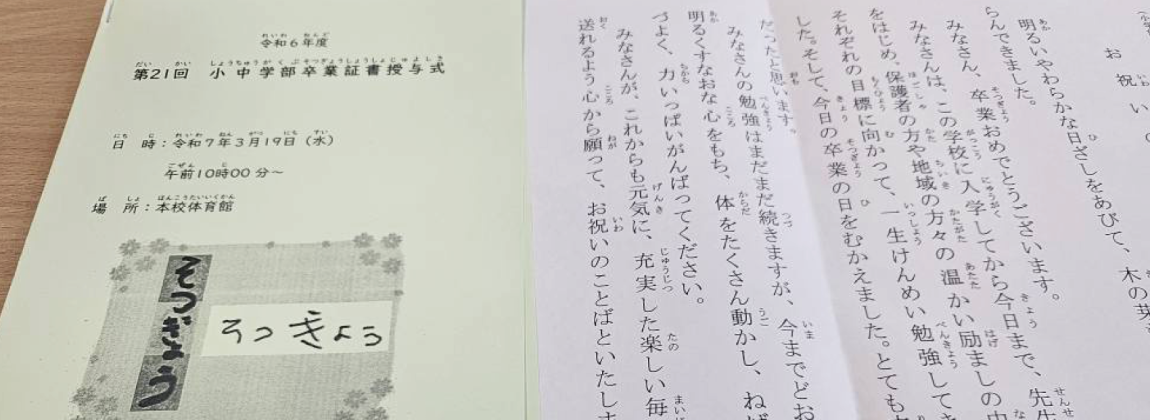 令和6年度
第21回 小中学部卒業証書授与式
日 時：令和7年3月19日（水）
午前10時00分～
場 所：本校体育館
そつぎょう
そつぎょう
お祝いの
明るいやわらかな日ざしをあびて、木の芽
らんできました。
みなさん、卒業おめでとうございます。
みなさんは、この学校に入学してから今日まで、先生
をはじめ、保護者の方や地域の方々の温かい励ましの中
それぞれの目標に向かって、一生けんめい勉強してき
した。そして、今日の卒業の日をむかえました。とても
だったと思います。
みなさんの勉強はまだまだ続きますが、今までどお
明るくすなおな心をもち、体をたくさん動かし、ねば
づよく、力いっぱいがんばってください。
みなさんが、これからも元気に、充実した楽しい毎
送れるよう心から願って、お祝いのことばといたしま